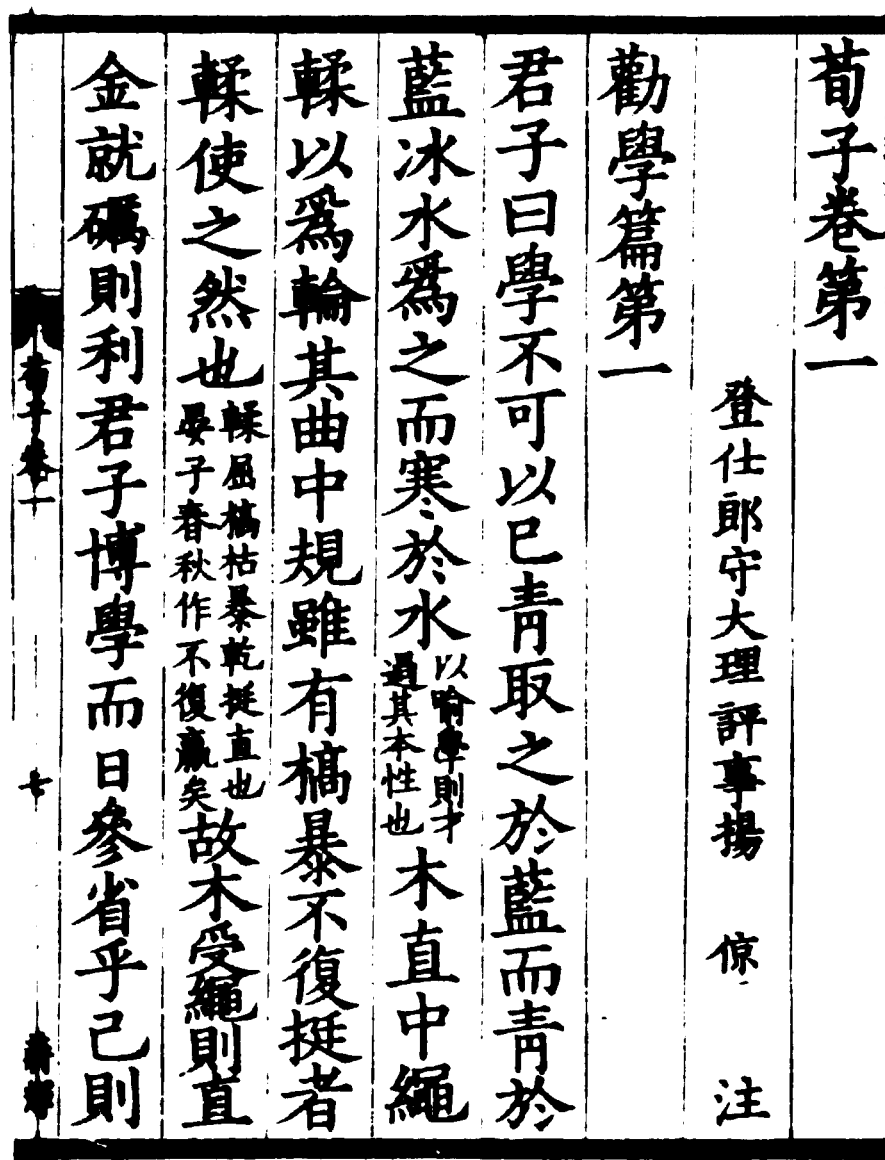 荀子卷第一
登仕郎守大理評事揚　倞　注
勸學篇第一
君子曰學不可以已青取之於藍而青於
藍冰水爲之而寒於水以喻學則才過其本性也木直中繩
輮以爲輪其曲中規雖有槁暴不復挺者
輮使之然也輮屈槁枯暴乾挺直也晏子春秋作不復贏矣故木受繩則直
金就礪則利君子博學而日參省乎己則
荀子卷一
七
蔣輝